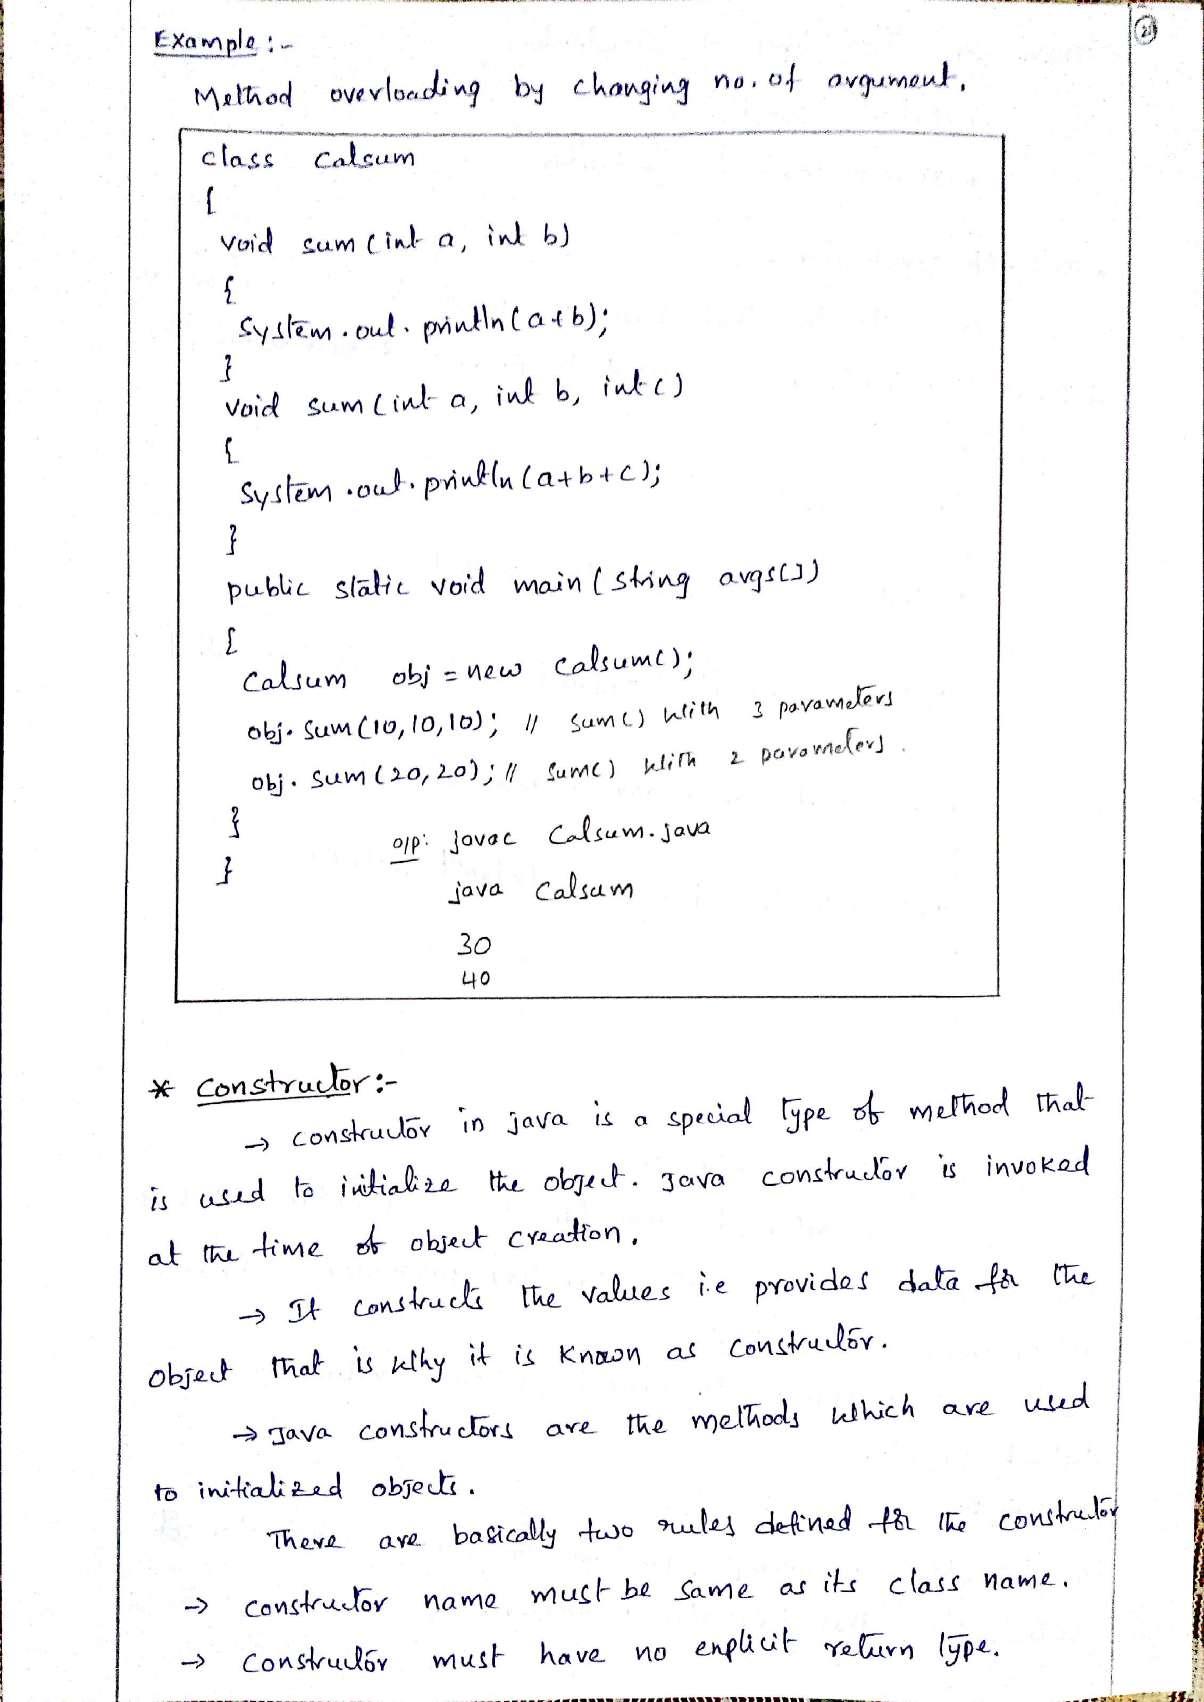 21
Example :-
Method overloading by changing no. of argument.
class Calsum
{
void sum (int a, int b)
{
System.out.println(a+b);
}
void sum (int a, int b, int c)
{
System.out.println(a+b+c);
}
public static void main (String args[])
{
Calsum obj = new Calsum();
obj.sum(10,10,10); // sum() with 3 parameters
obj.sum(20,20); // sum() with 2 parameters.
}
}
o/p: javac Calsum.java
java Calsum
30
40
* Constructor :-
→ constructor in java is a special type of method that
is used to initialize the object. Java constructor is invoked
at the time of object creation.
→ It constructs the values i.e provides data for the
object that is why it is known as constructor.
→ Java constructors are the methods which are used
to initialized objects.
There are basically two rules defined for the constructor
→ constructor name must be same as its class name.
→ constructor must have no explicit return type.